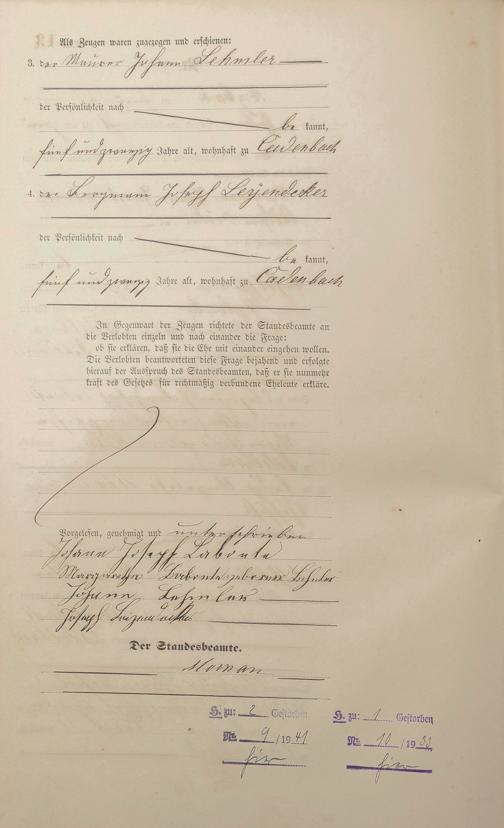 Als Zeugen waren zugezogen und erschienen:
3. der Maurer Johann Lehmler
der Persönlichkeit nach
be kannt,
fünf und zwanzig Jahre alt, wohnhaft zu Cadenbach
4. der Bergmann Joseph Leyendecker
der Persönlichkeit nach
be kannt,
fünf und zwanzig Jahre alt, wohnhaft zu Cadenbach
In Gegenwart der Zeugen richtete der Standesbeamte an
die Verlobten einzeln und nach einander die Frage:
ob sie erklären, daß sie die Ehe mit einander eingehen wollen.
Die Verlobten beantworteten diese Frage bejahend und erfolgte
hierauf der Ausspruch des Standesbeamten, daß er sie nunmehr
kraft des Gesetzes für rechtmäßig verbundene Eheleute erkläre.
Vorgelesen, genehmigt und unterschrieben
Johann Joseph Labonte
Margaretha Labonte geborene Lehmler
Johann Lehmler
Joseph
Der Standesbeamte.
H. zu: 2 Gestorben
Nr. 9 / 1941
hier
H. zu: 1 Gestorben
Nr. 10 / 19
hier